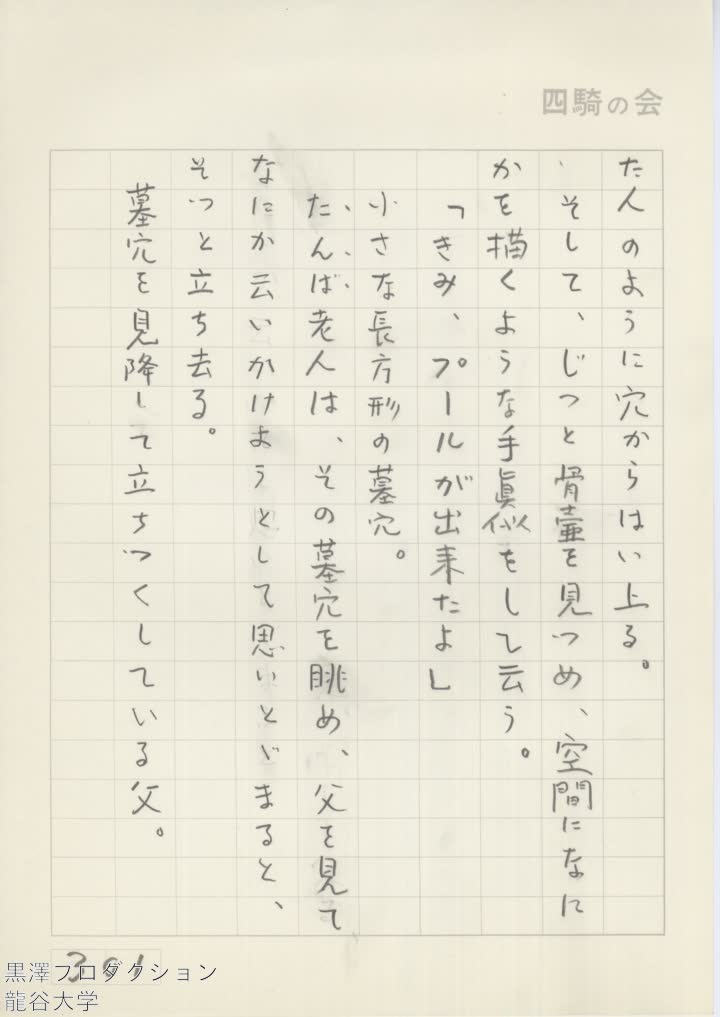 四騎の会
た人のように穴からはい上る。
そして、じっと骨壷を見つめ、空間になに
かを描くような手眞似をして云う。
「きみ、プールが出来たよ」
小さな長方形の墓穴。
たんば老人は、その墓穴を眺め、父を見て
なにか云いかけようとして思いとゞまると、
そっと立ち去る。
墓穴を見降して立ちつくしている父。
301
黒澤プロダクション
龍谷大学